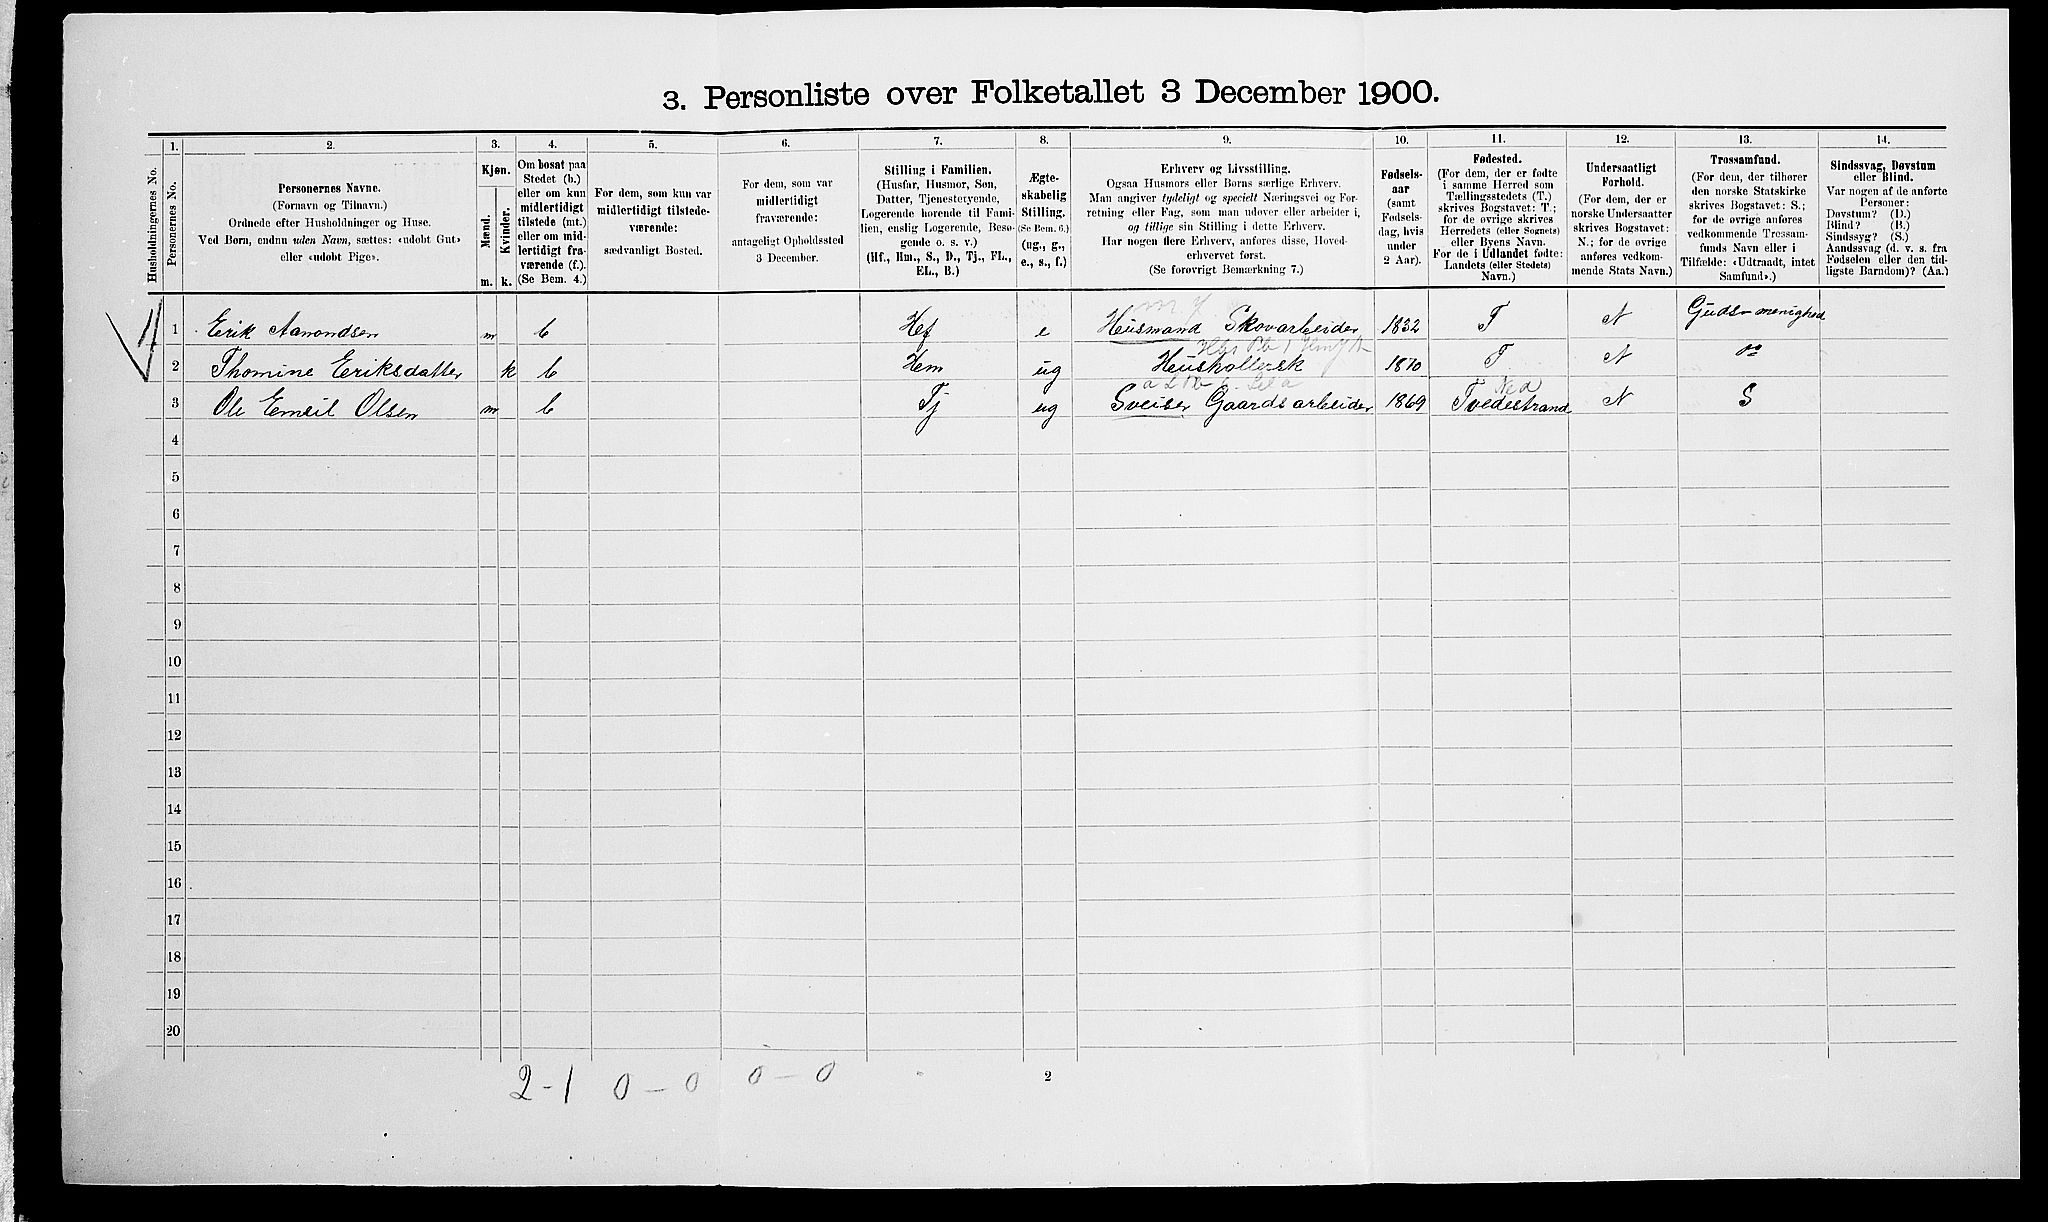 3. Personliste over Folketallet 3 December 1900.
Husholdningernes No.
1.
Personernes No.
2.
Personernes Navne.
(Fornavn og Tilnavn.)
Ordnede efter Husholdninger og Huse.
Ved Børn, endnu uden Navn, sættes: «udøbt Gut»
eller «udøbt Pige».
3.
Kjøn.
Mænd.
Kvinder.
m. k.
4.
Om bosat paa
Stedet (b.)
eller om kun
midlertidigt
tilstede (mt.)
eller om mid-
lertidigt fra-
værende (f.).
(Se Bem. 4.)
5.
For dem, som kun var
midlertidigt tilstede-
værende:
sædvanligt Bosted.
6.
For dem, som var
midlertidigt
fraværende:
antageligt Opholdssted
3 December.
7.
Stilling i Familien.
(Husfar, Husmor, Søn,
Datter, Tjenestetyende,
Logerende hørende til Fami-
lien, enslig Logerende, Besø-
gende o. s. v.)
(Hf., Hm., S., D., Tj., FL.,
EL., B.)
8.
Ægte-
skabelig
Stilling.
(Se Bem. 6.)
(ug., g.,
e., s., f.)
9.
Erhverv og Livsstilling.
Ogsaa Husmors eller Børns særlige Erhverv.
Man angiver tydeligt og specielt Næringsvei og For-
retning eller Fag, som man udøver eller arbeider i,
og tillige sin Stilling i dette Erhverv.
Har nogen flere Erhverv, anføres disse, Hoved-
erhvervet først.
(Se forøvrigt Bemærkning 7.)
10.
Fødsels-
aar
(samt
Fødsels-
dag, hvis
under
2 Aar).
11.
Fødested.
(For dem, der er fødte
i samme Herred som
Tællingsstedets (T.)
skrives Bogstavet: T.;
for de øvrige skrives
Herredets (eller Sognets)
eller Byens Navn.
For de i Udlandet fødte:
Landets (eller Stedets)
Navn.)
12.
Undersaatligt
Forhold.
(For dem, der er
norske Undersaatter
skrives Bogstavet:
N.; for de øvrige
anføres vedkom-
mende Stats Navn.)
13.
Trossamfund.
(For dem, der tilhører
den norske Statskirke
skrives Bogstavet: S.;
for de øvrige anføres
vedkommende Trossam-
funds Navn eller i
Tilfælde: «Udtraadt, intet
Samfund».)
14.
Sindssvag, Døvstum
eller Blind.
Var nogen af de anførte
Personer:
Døvstum? (D.)
Blind? (B.)
Sindssyg? (S.)
Aandssvag (d. v. s. fra
Fødselen eller den tid-
ligste Barndom)? (Aa.)
1 Erik Aanondsen m b Hf e Husmand Skovarbeider 1832 T N Guds-menighed
2 Thomine Eriksdatter k b Hm ug Husholdersk 1870 T N do
3 Ole Emil Olsen m b Tj ug Sveiser Gaardsarbeider 1869 Tvedestrand N S
4
5
6
7
8
9
10
11
12
13
14
15
16
17
18
19
20
2-1 0-0 0-0
2